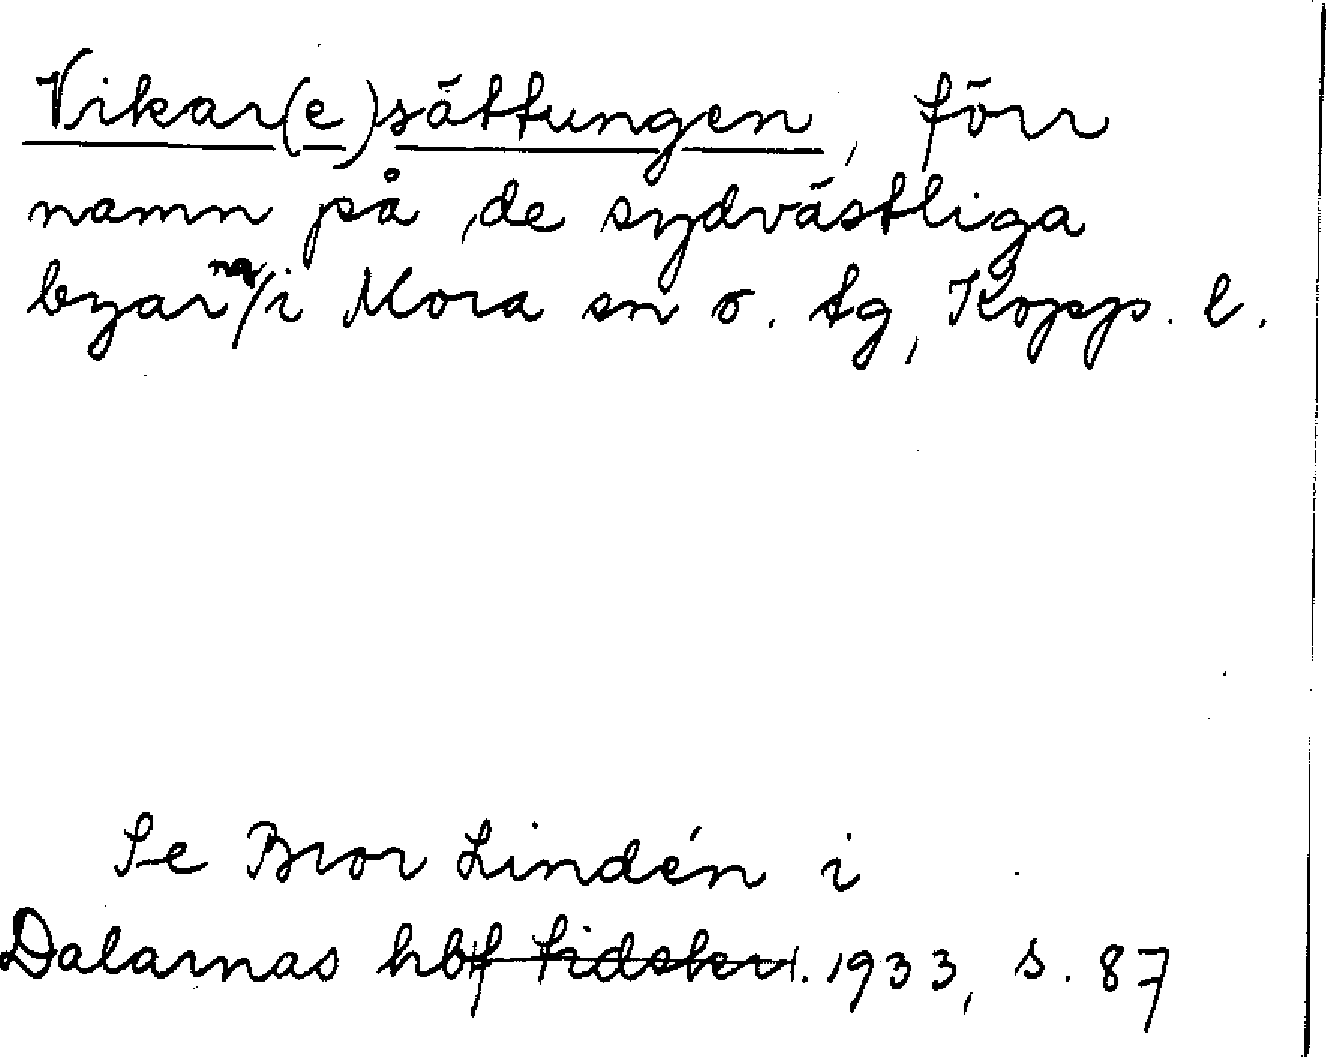 Vikar(e)sättungen, förr
namn på de sydvästliga
byarna i Mora sn o. tg, Kopp. l.
Se Bror Lindén i
Dalarnas hbf tidskr. 1933, s. 87